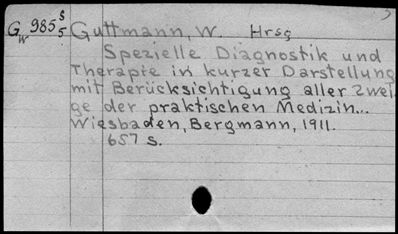 G 985 S/5 Guttmann, W. Hrsg
w
Spezielle Diagnostik und
Therapie in kurzer Darstellung
mit Berücksichtigung aller Zwei-
ge der praktischen Medizin...
Wiesbaden, Bergmann, 1911.
657 s.